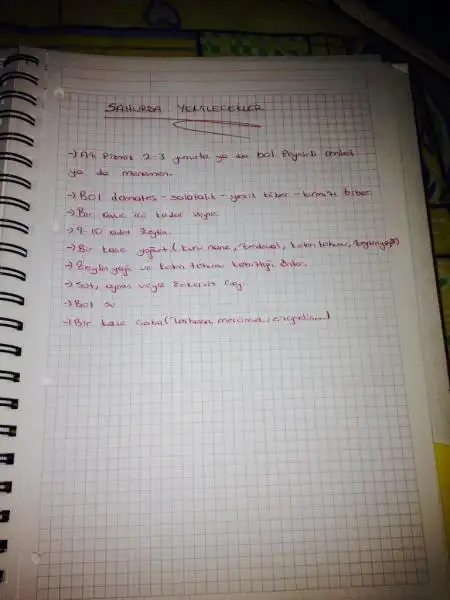 SAHURDA YENİLECEKLER
→) Az pişmiş 2-3 yumurta ya da bol peynirli omlet
ya da menemen.
→) Bol domates - salatalık - yeşil biber - kırmızı biber.
→) Bir avuç içi kadar peynir
→) 9-10 adet zeytin.
→) Bir kase yoğurt (kuru nane, keten tohumu, zeytinyağı)
→) Zeytin yağı ve keten tohumu kabızlığı önler.
→) Süt, ayran veya şekersiz çay.
→) Bol su
→) Bir kase çorba (Tarhana, mercimek, ezogelin....)